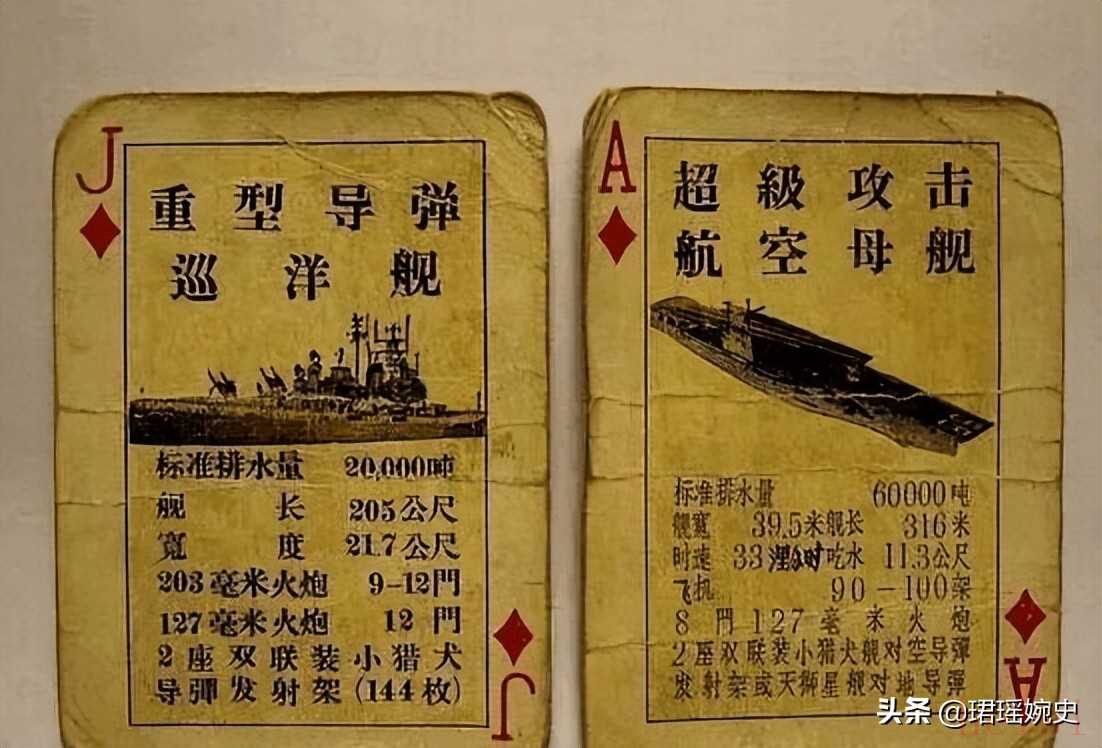 J
重型导弹
巡洋舰
标准排水量 20,000吨
舰长 205公尺
寬度 21.7公尺
203毫米火炮 9-12門
127毫米火炮 12門
2座双联装小猎犬
导彈发射架(144枚)
J
A
超級攻击
航空母舰
标准排水量 60000吨
舰寬 39.5米舰长 316米
时速 33浬/小时吃水 11.3公尺
飞机 90-100架
8門127毫米火炮
2座双联装小猎犬舰对空导彈
发射架或天狮星舰对地导彈
A
头条 @珺瑶婉史